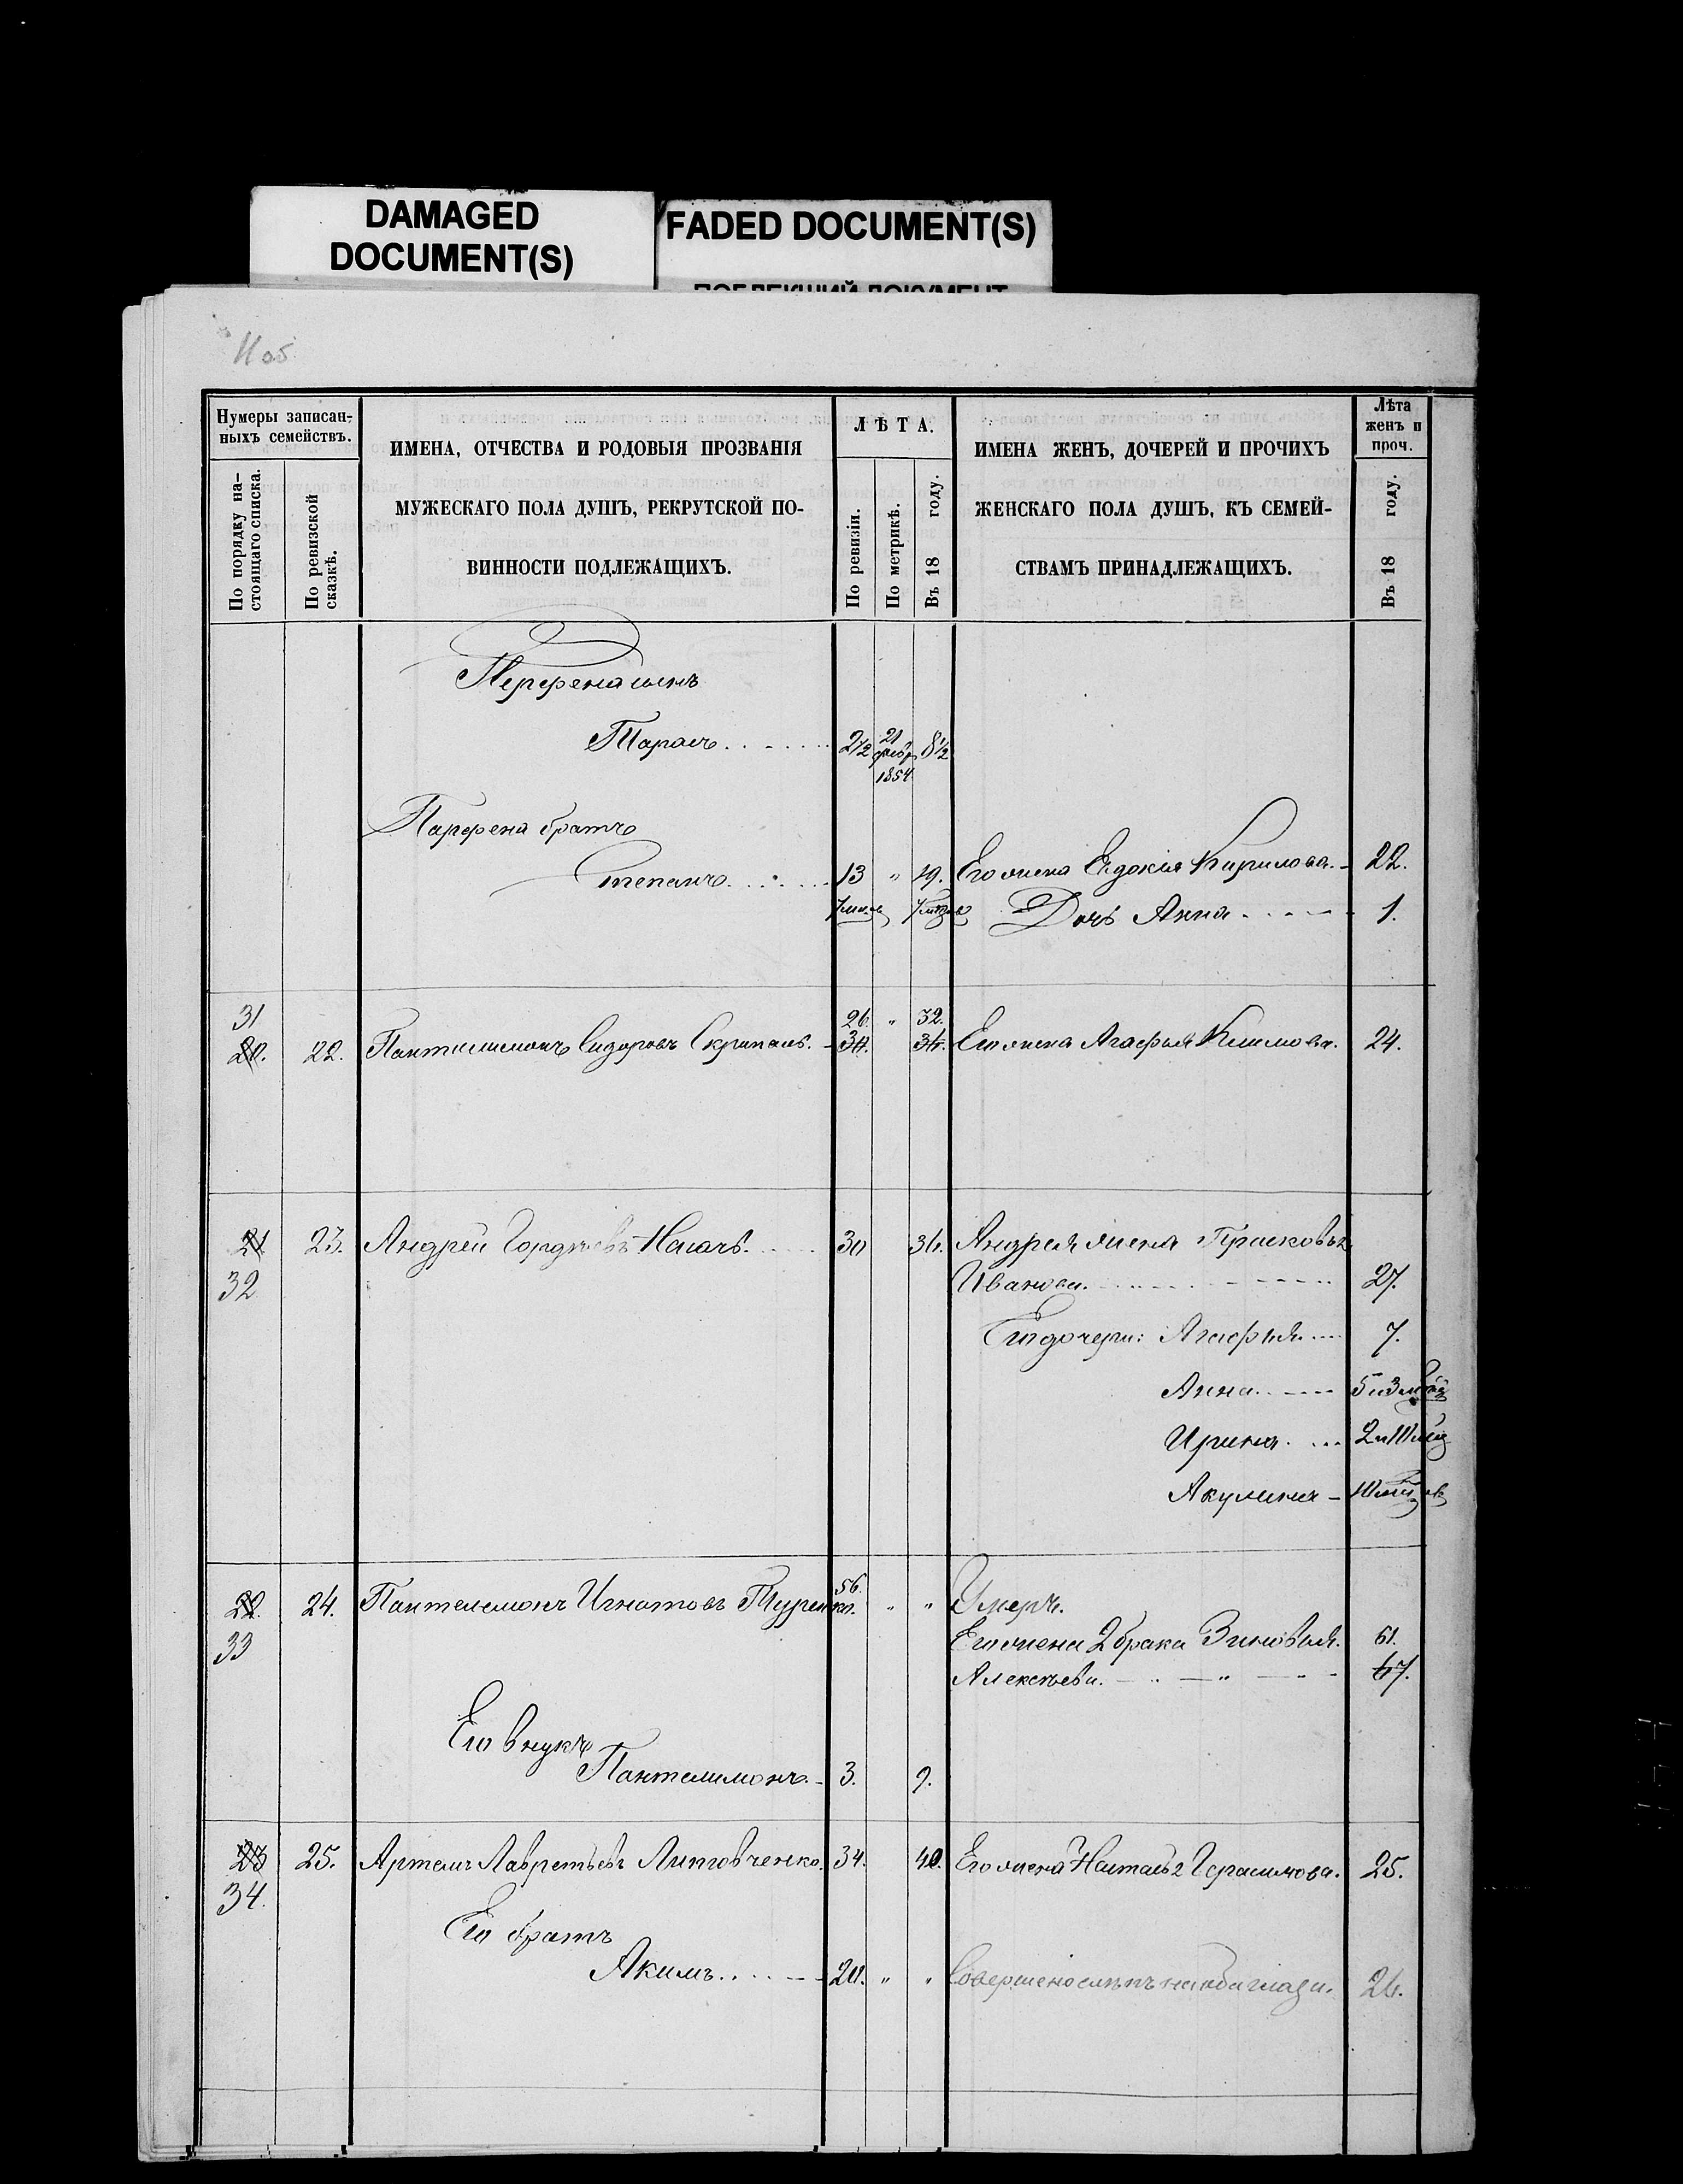 DAMAGED
DOCUMENT(S)
FADED DOCUMENT(S)
ПОБЛЕКШИЙ ДОКУМЕНТ
11 об
Нумеры записан-
ныхъ семействъ.
По порядку на-
стоящаго списка.
По ревизской
сказкѣ.
ИМЕНА, ОТЧЕСТВА И РОДОВЫЯ ПРОЗВАНІЯ
МУЖЕСКАГО ПОЛА ДУШЪ, РЕКРУТСКОЙ ПО-
ВИННОСТИ ПОДЛЕЖАЩИХЪ.
ЛѢТА.
По ревизіи.
По метрикѣ.
Въ 18 году.
ИМЕНА ЖЕНЪ, ДОЧЕРЕЙ И ПРОЧИХЪ
ЖЕНСКАГО ПОЛА ДУШЪ, КЪ СЕМЕЙ-
СТВАМЪ ПРИНАДЛЕЖАЩИХЪ.
Лѣта
женъ и
проч.
Въ 18 году.
Перфена сынъ
Тарасъ 2 1/2 21 февр 1854 8 1/2
Парфена братъ
Степанъ 13 " 19. Его жена Евдокія Кирилова. 22.
Дочь Анна 1.
31 26. " 32.
20. 22. Пантелимонъ Сидоровъ Скрипаль. 30. 36. Его жена Агафья Климова. 24.
21 23. Андрей Гордѣевъ Носачь. 30 36. Андрея жена Прасковья
32 Иванова. 27.
Его дочери: Агафья 7.
Анна 5 и 3 м
Ирина 2 и
Акулина
22. 24. Пантелемонъ Игнатовъ Туренко. 56. " " Умеръ.
33 Его жена 2 брака Зиновья. 61.
Алексѣева. 67.
Его внукъ
Пантелимонъ 3. 9.
23 25. Артемъ Лаврентьевъ Липговченко. 34. 40. Его жена Настасья Герасимова. 25.
34.
Его братъ
Акимъ 20. " " Совершено слѣпъ на оба глаза. 26.